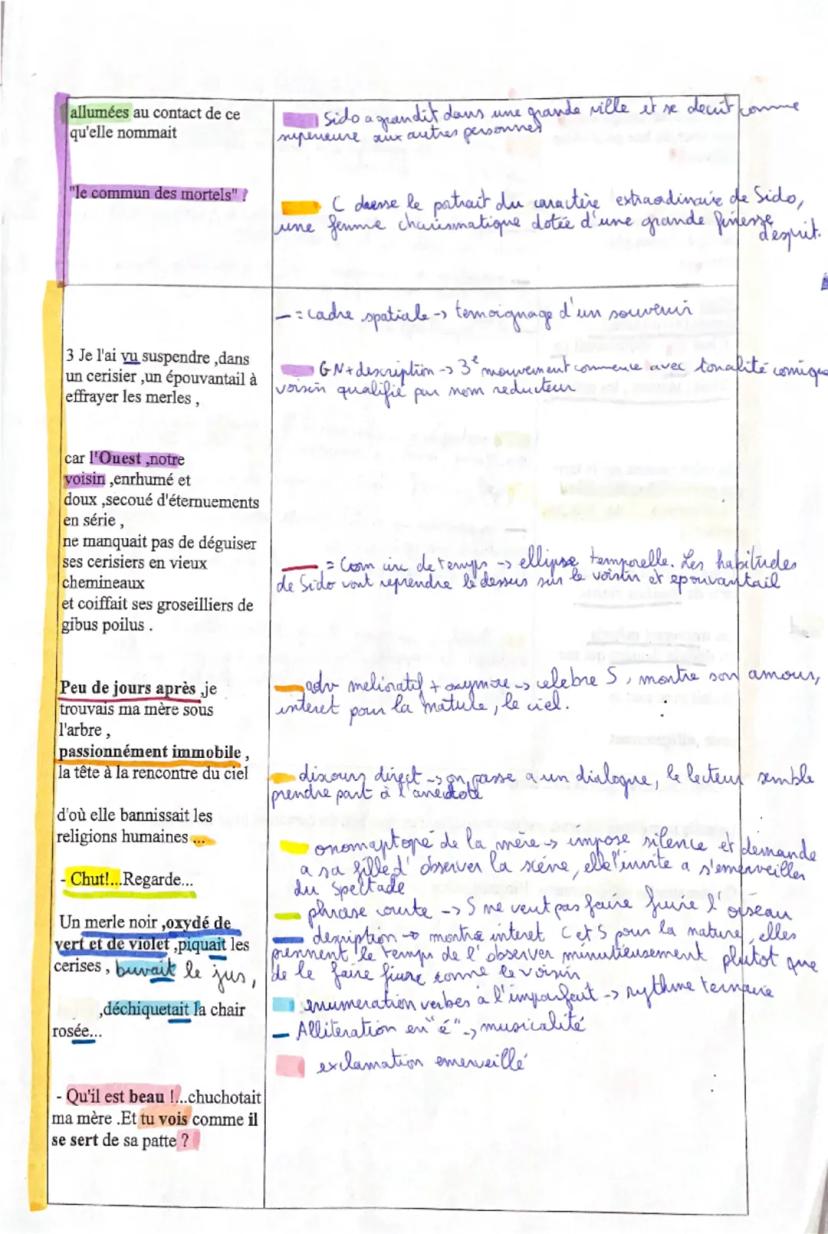 allumées au contact de ce
qu'elle nommait
"le commun des mortels" ?
Sido a grandit dans une grande ville et se decrit comme
superieure aux autres personnes
C dresse le patrait du caractère extraordinaire de Sido,
une femme charismatique dotée d'une grande finesse
d'esprit.
— = cadre spatiale -> temoignage d'un souvenir
3 Je l'ai vu suspendre ,dans
un cerisier ,un épouvantail à
effrayer les merles ,
GN + description -> 3e mouvement commence avec tonalité comique
voisin qualifié par nom reducteur
car l'Ouest ,notre
voisin ,enrhumé et
doux ,secoué d'éternuements
en série ,
ne manquait pas de déguiser
ses cerisiers en vieux
chemineaux
et coiffait ses groseilliers de
gibus poilus .
— = Com circ de temps -> ellipse temporelle. Les habitudes
de Sido vont reprendre le dessus sur le voisin et epouvantail
Peu de jours après ,je
trouvais ma mère sous
l'arbre ,
passionnément immobile ,
la tête à la rencontre du ciel
adv melioratif + oxymore -> celebre S, montre son amour,
interet pour la nature, le ciel.
d'où elle bannissait les
religions humaines ...
discours direct -> on passe a un dialogue, le lecteur semble
prendre part à l'anecdote
- Chut!...Regarde...
onomaptopé de la mère -> impose silence et demande
a sa fille d'observer la scéne, elle l'invite a s'emerveiller
du spectacle
phrase courte -> S ne veut pas faire fuire l'oiseau
Un merle noir ,oxydé de
vert et de violet ,piquait les
cerises , buvait le jus,
,déchiquetait la chair
rosée...
description -> montre interet C et S pour la nature, elles
prennent le temps de l'observer minutieusement plutot que
de le faire fuire comme le voisin
enumeration verbes à l'imparfait -> rythme ternaire
Alliteration en "é" -> musicalité
exclamation emerveillé
- Qu'il est beau !...chuchotait
ma mère .Et tu vois comme il
se sert de sa patte ?